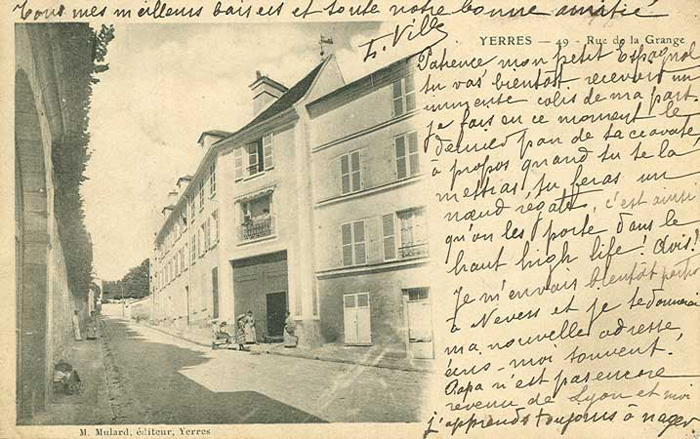 Tous mes meilleurs baisers et toute notre bonne amitié
YERRES — 49 - Rue de la Grange
Patience mon petit Espagnol
tu vas bientôt recevoir un
immense colis de ma part
je fais en ce moment le
dernier pan de ta cravate
à propos quand tu te la
mettras, tu feras un
nœud régate, c'est ainsi
qu'on les porte dans le
haut high life!
je m'en vais bientôt partir
à Nevers et je te donnerai
ma nouvelle adresse,
écris-moi souvent.
Papa n'est pas encore
revenu de Lyon et moi
j'apprends toujours à nager.
M. Mulard, éditeur, Yerres